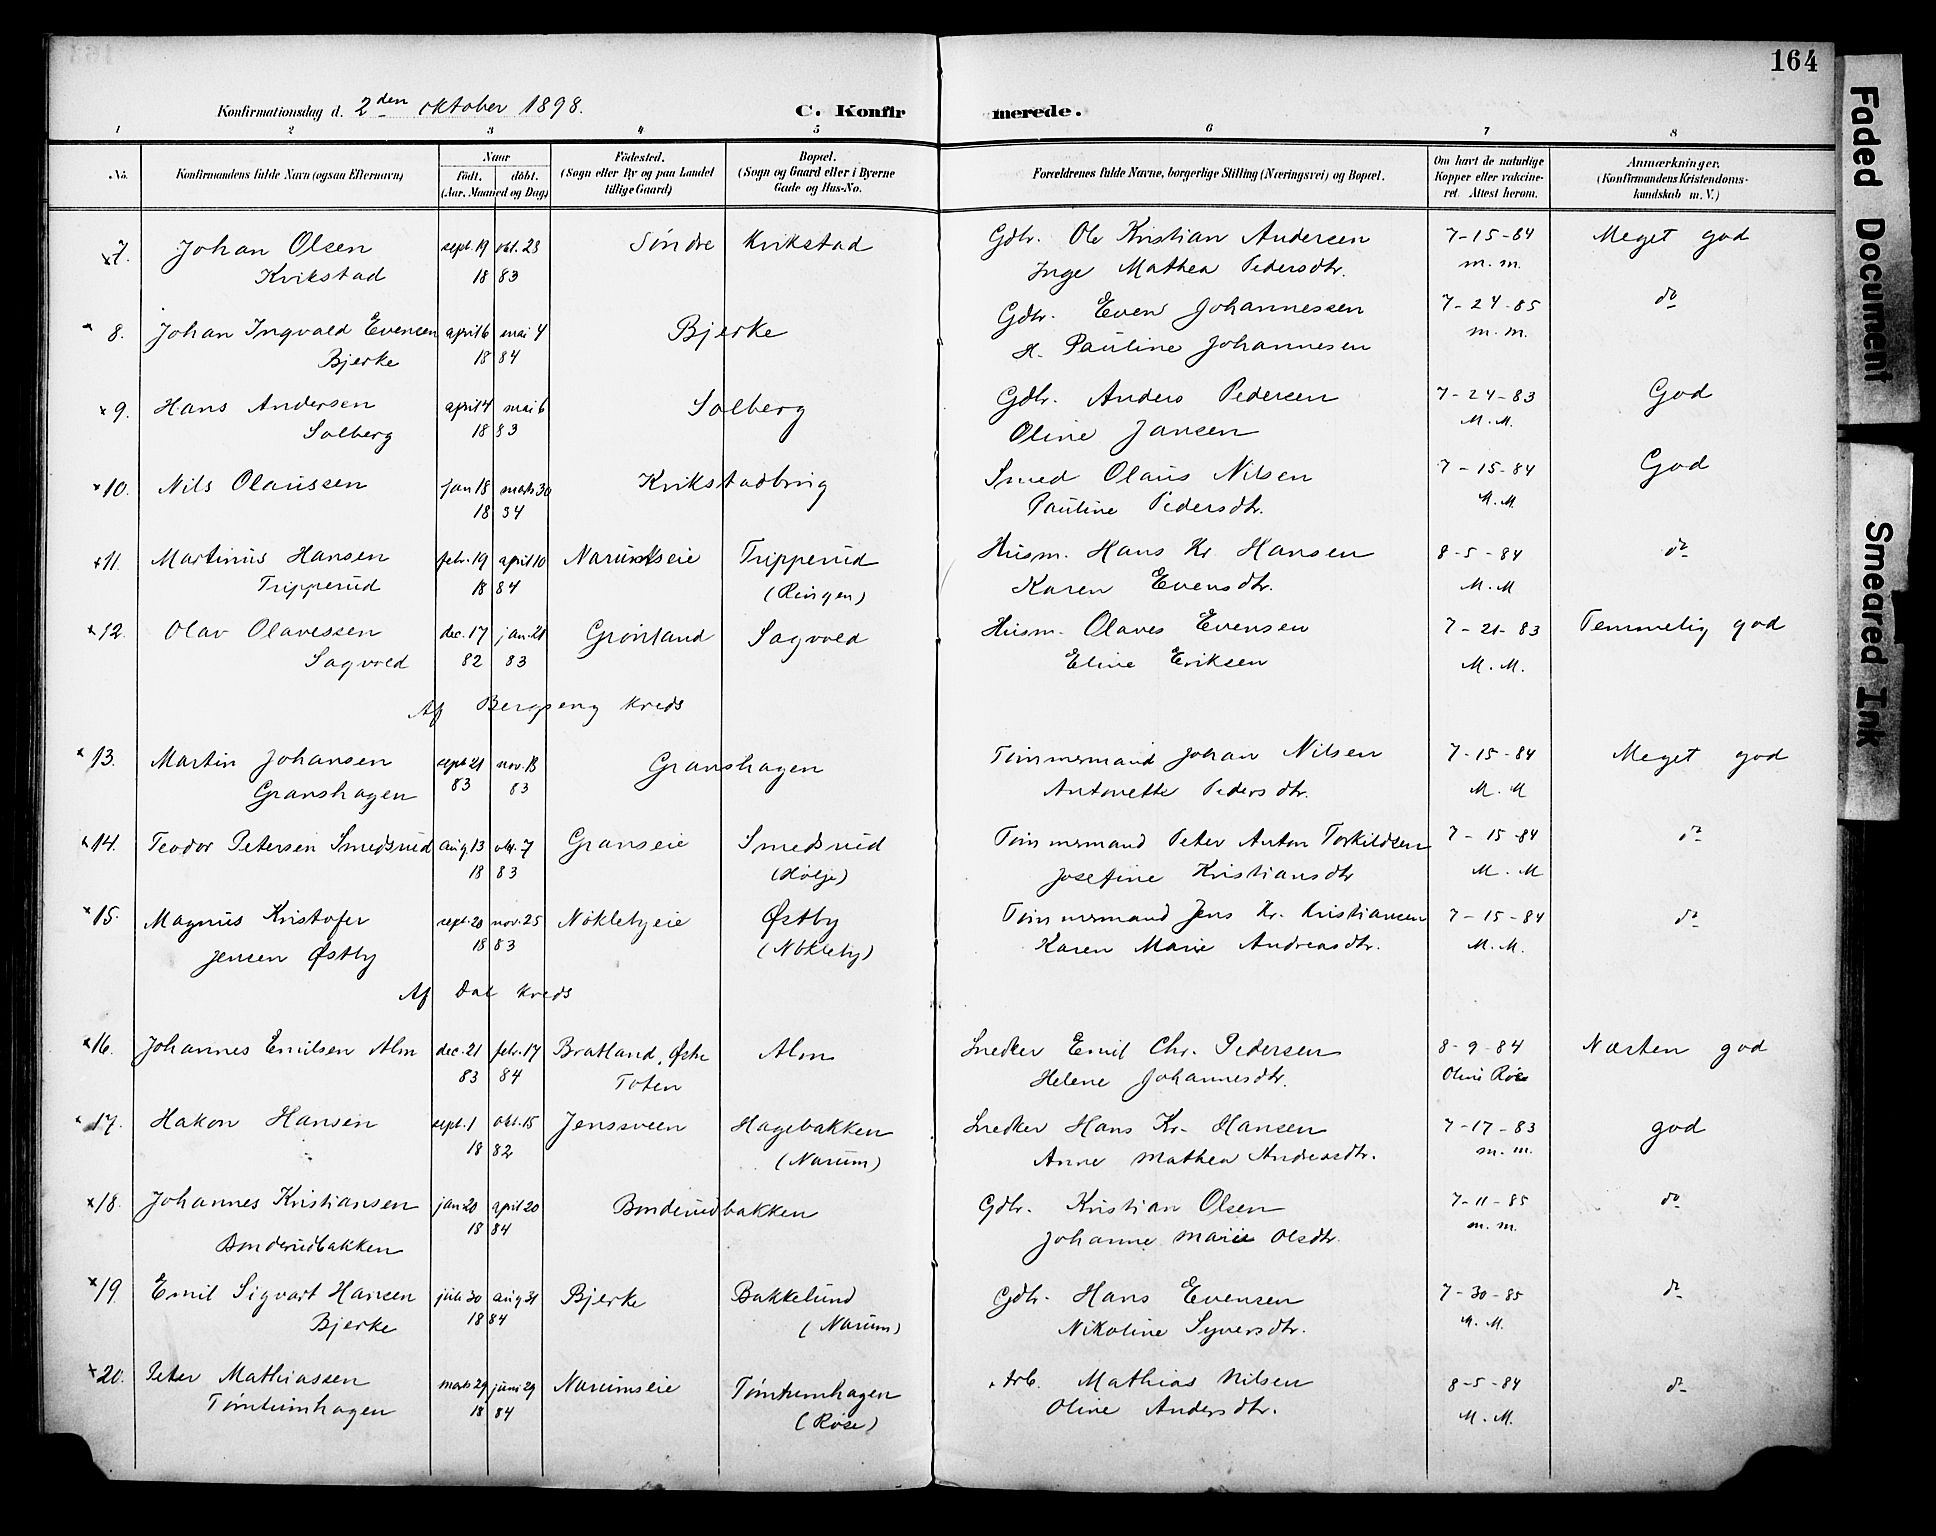 164
Konfirmationsdag d. 2den oktober 1898. C. Konfirmerede.
1 2 3 4 5 6 7 8
No. Konfirmandens fulde Navn (ogsaa Efternavn) Naar Födt. döbt. (Aar, Maaned og Dag) Födested. (Sogn eller By og paa Landet tillige Gaard) Bopæl. (Sogn og Gaard eller i Byerne Gade og Hus-No. Forældrenes fulde Navne, borgerlige Stilling (Næringsvei) og Bopæl. Om havt de naturlige Kopper eller vakcineret. Attest herom. Anmærkninger. (Konfirmandens Kristendomskundskab m. V.)
x7. Johan Olsen sept. 19 okt. 28 Søndre Kvikstad Gdbr. Ole Kristian Andersen 7-15-84 Meget god
Kvikstad 18 83 Inge Mathea Pedersdtr. m. m.
8. Johan Ingvald Evensen april 6 mai 4 Bjerke Gdbr. Even Johannessen 7-24-85 do
Bjerke 18 84 H. Pauline Johannesen m. m.
x 9. Hans Andersen april 4 mai 6 Solberg Gdbr. Anders Pedersen 7-24-83 God
Solberg 18 83 Oline Jansen M. M.
x 10. Nils Olaussen jan 18 mats 30 Kvikstadbring Smed Olaus Nilsen 7-15-84 God
18 34 Pauline Pedersdtr. M. M.
x 11. Martinus Hansen febr. 19 april 10 Narumseie Tripperud Husm. Hans Kr. Hansen 8-5-84 do
Tripperud 18 84 (Ringen) Karen Evensdtr. M. M
x 12. Olav Olavessen dec. 17 jan. 21 Grønland Sagvold Husm. Olaves Evensen 7-21-83 Temmelig god
Sagvold 82 83 Eline Eriksen M. M.
Af Bergseng Kreds
x 13. Martin Johansen sept 21 nov. 18 Granshagen Tømmermand Johan Nilsen 7-15-84 Meget god
Granshagen 83 83 Antonette Pedersdtr. M. M
x 14. Teodor Petersen Smedsrud aug 13 okt. 7 Granseie Smedsrud Tømmermand Peter Anton Torkildsen 7-15-84 do
18 83 (Hølje) Josefine Kristiansdtr M. M
x 15. Magnus Kristofer sept. 20 nov. 25 Nøklebyeie Østby Tømmermand Jens Kr. Kristiansen 7-15-84 do
Jensen Østby 18 83 (Nøkleby) Karen Marie Andreasdtr. M. M.
Af Dal Kreds
x 16. Johannes Emilsen Alm dec. 21 febr. 17 Bratland, Østre Alm Snedker Emil Chr. Pedersen 8-9-84 Næsten god
83 84 Toten Helene Johannesdtr. Oline Røse
17. Hakon Hansen sept. 1 okt. 15 Jenssveen Hagebakken Snedker Hans Kr. Hansen 7-17-83 god
18 82 (Narum) Anne Mathea Andreasdtr. m. m.
x 18. Johannes Kristiansen jan 20 april 20 Bonderudbakken Gdbr. Kristian Olsen 7-11-85 do
Bonderudbakken 18 84 Johanne Marie Olsdtr. m. m.
x 19 Emil Sigvart Hansen juli 30 aug 31 Bjerke Bakkelund Gdbr. Hans Evensen 7-30-85 do
Bjerke 18 84 (Narum) Nikoline Syversdtr. M. M.
x 20. Peter Mathiassen mats 29 juni 29 Narumseie Tømtumhagen Arb. Mathias Nilsen 8-5-84 do
Tømtumhagen 18 84 (Røse) Oline Andersdtr. M. M.
Faded Document
Smeared Ink